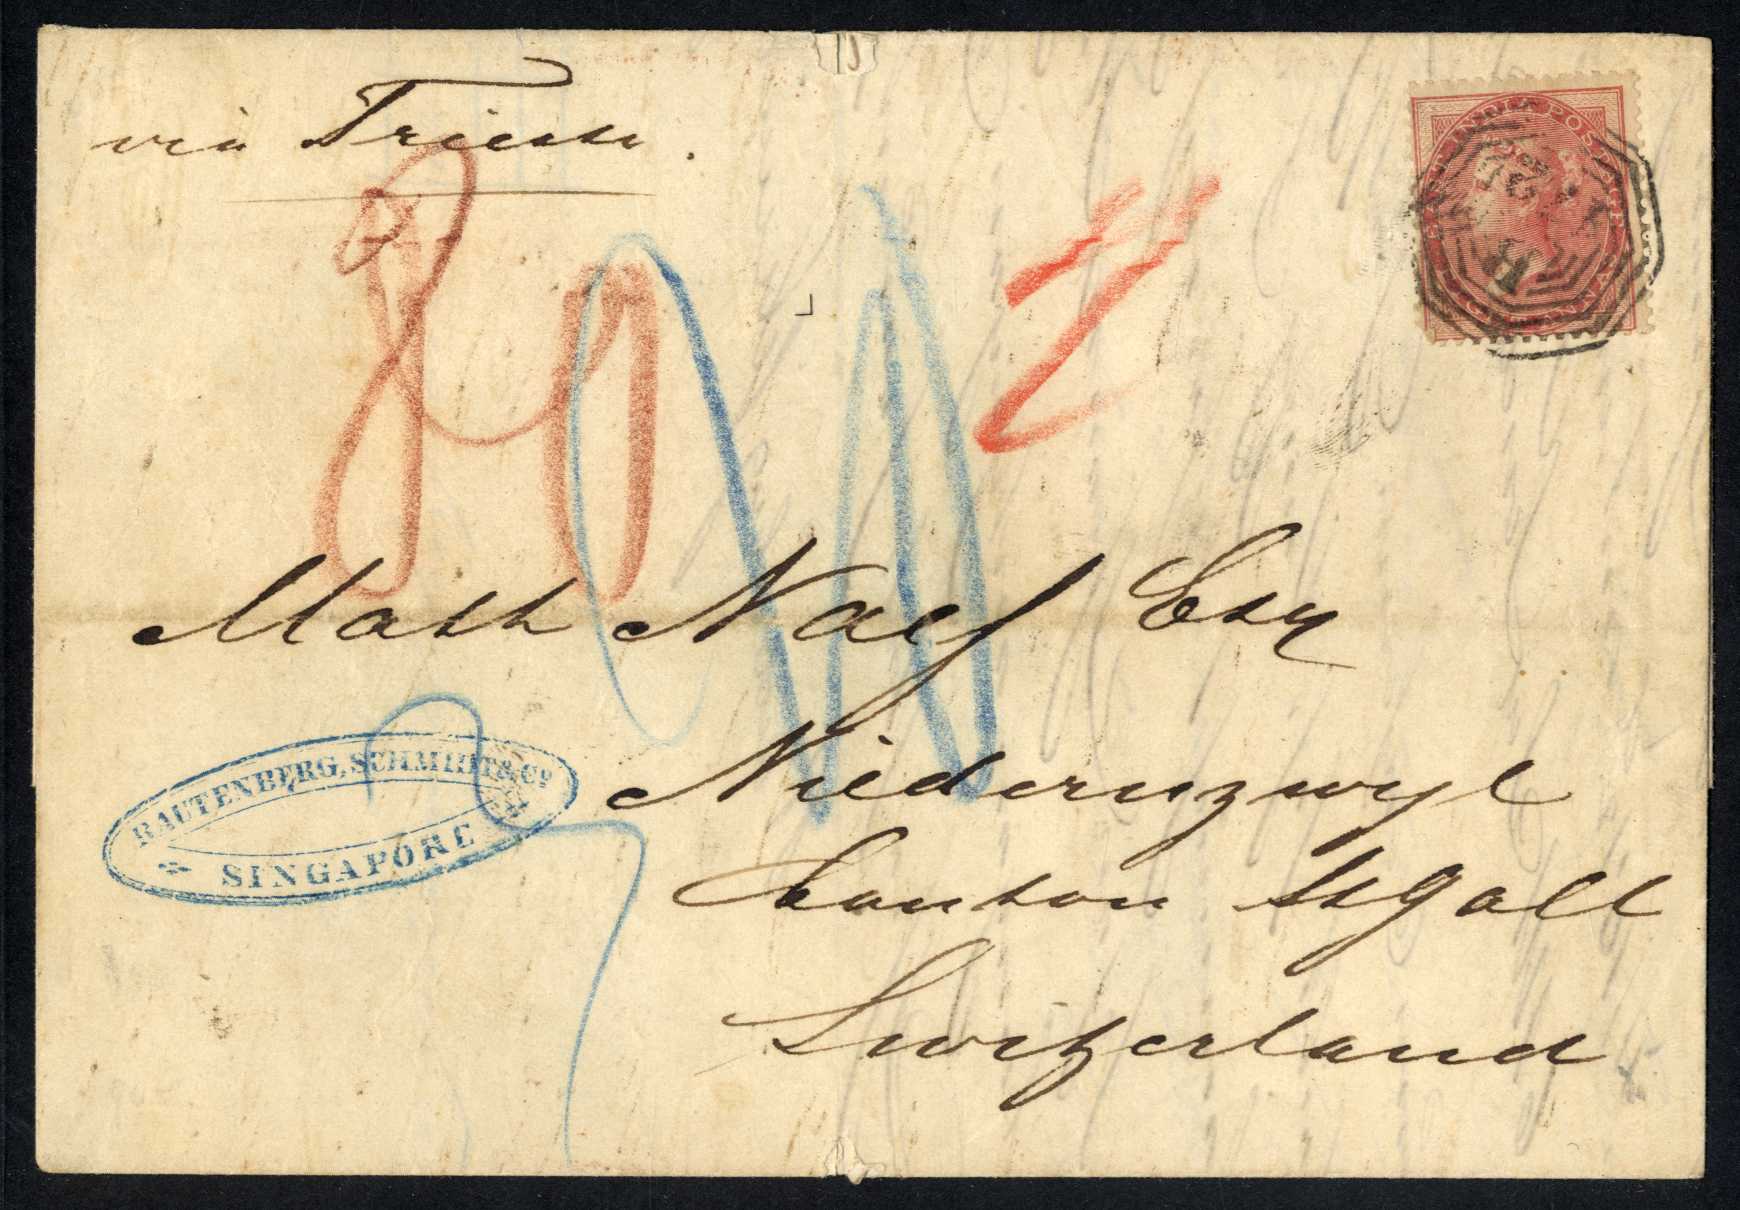 via Trieste.
EAST INDIA POSTAGE
B
172
80
Math Naef Esq
Niedernzwyl
Canton St gall
Switzerland
RAUTENBERG, SCHMIDT & Co.
SINGAPORE